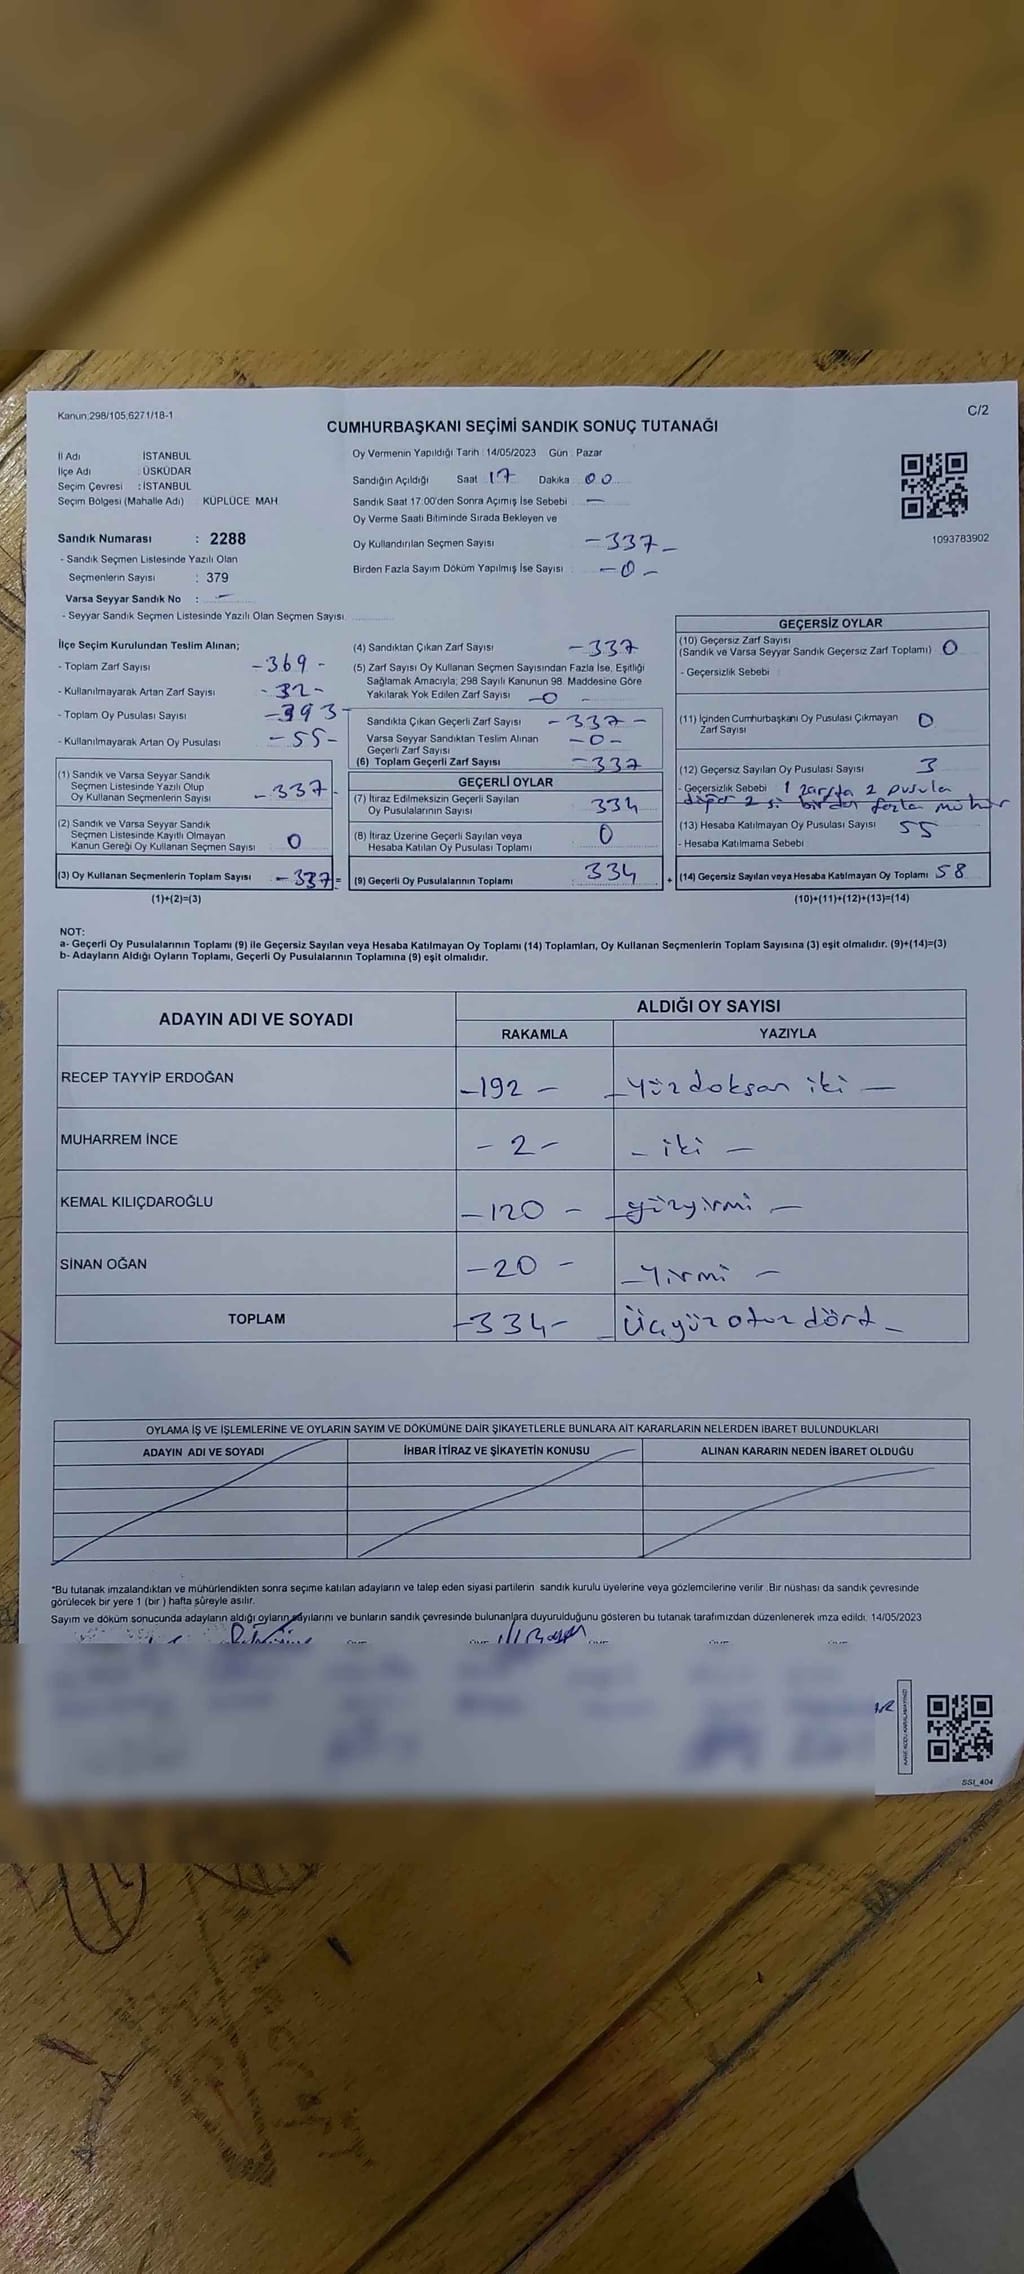 Kanun:298/105,6271/18-1
C/2
CUMHURBAŞKANI SEÇİMİ SANDIK SONUÇ TUTANAĞI
İl Adı İSTANBUL
İlçe Adı : ÜSKÜDAR
Seçim Çevresi : İSTANBUL
Seçim Bölgesi (Mahalle Adı) KÜPLÜCE MAH
Sandık Numarası : 2288
- Sandık Seçmen Listesinde Yazılı Olan
Seçmenlerin Sayısı : 379
Varsa Seyyar Sandık No : -
- Seyyar Sandık Seçmen Listesinde Yazılı Olan Seçmen Sayısı
Oy Vermenin Yapıldığı Tarih : 14/05/2023 Gün : Pazar
Sandığın Açıldığı Saat 17 Dakika 00
Sandık Saat 17.00'den Sonra Açımış İse Sebebi -
Oy Verme Saati Bitiminde Sırada Bekleyen ve
Oy Kullandırılan Seçmen Sayısı -337-
Birden Fazla Sayım Döküm Yapılmış İse Sayısı -0-
1093783902
İlçe Seçim Kurulundan Teslim Alınan;
- Toplam Zarf Sayısı -369-
- Kullanılmayarak Artan Zarf Sayısı -32-
- Toplam Oy Pusulası Sayısı -393-
- Kullanılmayarak Artan Oy Pusulası -55-
(1) Sandık ve Varsa Seyyar Sandık
Seçmen Listesinde Yazılı Olup
Oy Kullanan Seçmenlerin Sayısı -337-
(2) Sandık ve Varsa Seyyar Sandık
Seçmen Listesinde Kayıtlı Olmayan
Kanun Gereği Oy Kullanan Seçmen Sayısı 0
(3) Oy Kullanan Seçmenlerin Toplam Sayısı -337=
(1)+(2)=(3)
(4) Sandıktan Çıkan Zarf Sayısı -337
(5) Zarf Sayısı Oy Kullanan Seçmen Sayısından Fazla İse, Eşitliği
Sağlamak Amacıyla; 298 Sayılı Kanunun 98. Maddesine Göre
Yakılarak Yok Edilen Zarf Sayısı -0-
Sandıkta Çıkan Geçerli Zarf Sayısı -337-
Varsa Seyyar Sandıktan Teslim Alınan
Geçerli Zarf Sayısı -0-
(6) Toplam Geçerli Zarf Sayısı -337
GEÇERLİ OYLAR
(7) İtiraz Edilmeksizin Geçerli Sayılan
Oy Pusulalarının Sayısı 334
(8) İtiraz Üzerine Geçerli Sayılan veya
Hesaba Katılan Oy Pusulası Toplamı 0
(9) Geçerli Oy Pusulalarının Toplamı 334 +
GEÇERSİZ OYLAR
(10) Geçersiz Zarf Sayısı
(Sandık ve Varsa Seyyar Sandık Geçersiz Zarf Toplamı) 0
- Geçersizlik Sebebi
(11) İçinden Cumhurbaşkanı Oy Pusulası Çıkmayan
Zarf Sayısı 0
(12) Geçersiz Sayılan Oy Pusulası Sayısı 3
- Geçersizlik Sebebi 1 zarfta 2 pusula
diğer 2 si birden fazla mühür
(13) Hesaba Katılmayan Oy Pusulası Sayısı 55
- Hesaba Katılmama Sebebi
(14) Geçersiz Sayılan veya Hesaba Katılmayan Oy Toplamı 58
(10)+(11)+(12)+(13)=(14)
NOT:
a- Geçerli Oy Pusulalarının Toplamı (9) ile Geçersiz Sayılan veya Hesaba Katılmayan Oy Toplamı (14) Toplamları, Oy Kullanan Seçmenlerin Toplam Sayısına (3) eşit olmalıdır. (9)+(14)=(3)
b- Adayların Aldığı Oyların Toplamı, Geçerli Oy Pusulalarının Toplamına (9) eşit olmalıdır.
ADAYIN ADI VE SOYADI ALDIĞI OY SAYISI
RAKAMLA YAZIYLA
RECEP TAYYİP ERDOĞAN -192- -Yüzdoksan iki-
MUHARREM İNCE -2- -iki-
KEMAL KILIÇDAROĞLU -120- -yüzyirmi-
SİNAN OĞAN -20- -Yirmi-
TOPLAM -334- -Üçyüzotuzdört-
OYLAMA İŞ VE İŞLEMLERİNE VE OYLARIN SAYIM VE DÖKÜMÜNE DAİR ŞİKAYETLERLE BUNLARA AİT KARARLARIN NELERDEN İBARET BULUNDUKLARI
ADAYIN ADI VE SOYADI İHBAR İTİRAZ VE ŞİKAYETİN KONUSU ALINAN KARARIN NEDEN İBARET OLDUĞU
*Bu tutanak imzalandıktan ve mühürlendikten sonra seçime katılan adayların ve talep eden siyasi partilerin sandık kurulu üyelerine veya gözlemcilerine verilir. Bir nüshası da sandık çevresinde
görülecek bir yere 1 (bir) hafta süreyle asılır.
Sayım ve döküm sonucunda adayların aldığı oyların sayılarını ve bunların sandık çevresinde bulunanlara duyurulduğunu gösteren bu tutanak tarafımızdan düzenlenerek imza edildi. 14/05/2023
SSI_404